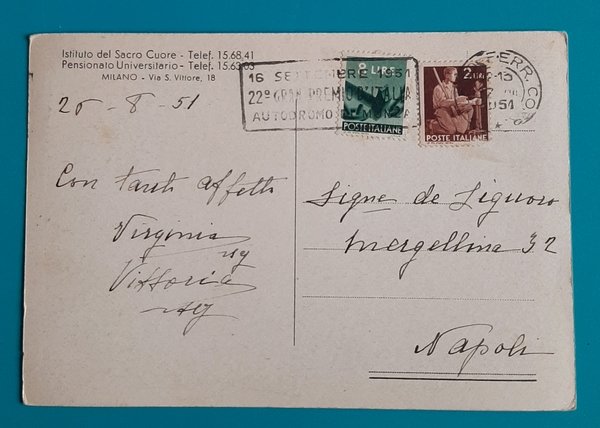 Istituto del Sacro Cuore - Telef. 15.68.41
Pensionato Universitario - Telef. 15.63.03
MILANO - Via S. Vittore, 18
16 SETTEMBRE 1951
22º GRAN PREMIO D'ITALIA
AUTODROMO DI MONZA
8 LIRE
POSTE ITALIANE
2 LIRE
POSTE ITALIANE
FERR. CO
1951
25-8-51
Con tanti affetti
Virginia
Vittoria
Signe de Liguoro
Mergellina 32
Napoli